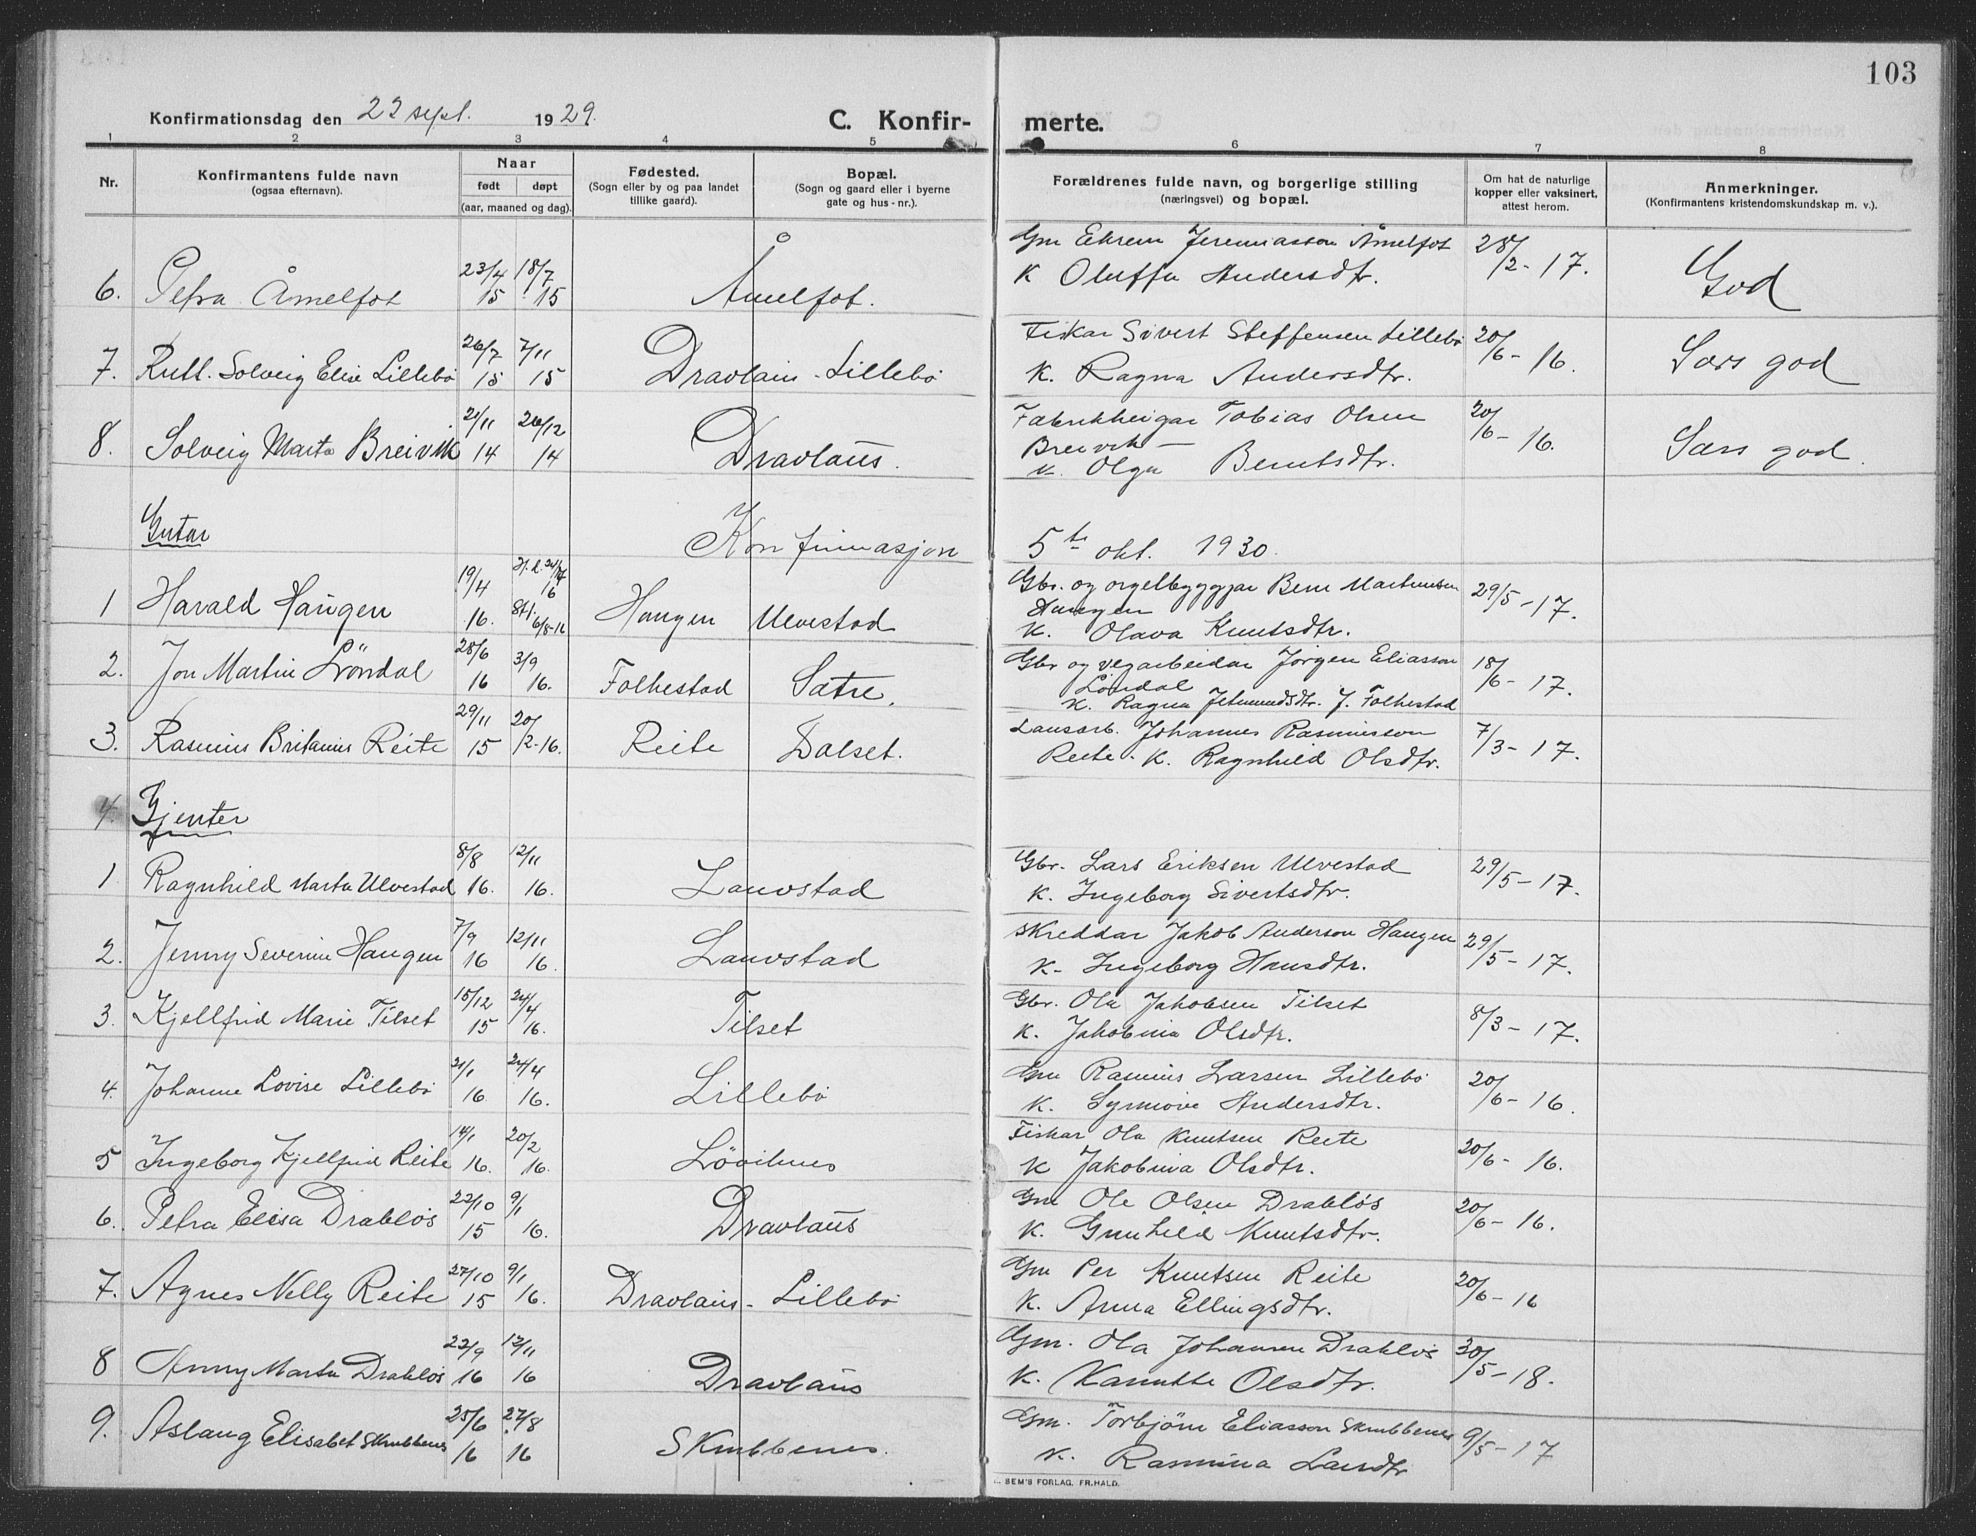 103
Konfirmationsdag den 22 sept. 1929.
C. Konfirmerte.
1 2 3 4 5 6 7 8
Nr.
Konfirmantens fulde navn
(ogsaa efternavn).
Naar
født døpt
(aar, maaned og dag).
Fødested.
(Sogn eller by og paa landet
tillike gaard).
Bopæl.
(Sogn og gaard eller i byerne
gate og hus-nr.).
Forældrenes fulde navn, og borgerlige stilling
(næringsvei) og bopæl.
Om hat de naturlige
kopper eller vaksinert,
attest herom.
Anmerkninger.
(Konfirmantens kristendomskundskap m. v.).
6. Petra Åmelfot 23/4 15 18/7 15 Åmelfot. Gm Ekrem Jeremiasson Åmelfot 28/2-17. God
K Oluffa Andersdtr.
7. Rutt Solveig Elise Lillebö 26/7 15 7/11 15 Dravlaus-Lillebö Fiskar Sivert Steffensen Lillebö 20/6-16. Særs god
K. Ragna Andersdtr.
8. Solveig Marta Breivik 21/11 14 26/12 14 Dravlaus. Fabrikkeigar Tobias Olsen 20/6-16. Særs god.
Breivik
K. Olga Berntsdtr.
Gutar Konfirmasjon 5te okt. 1930.
1 Harald Haugen 19/4 16. 16 St. 6/8-16 Haugen Ulvestad Gbr. og orgelbyggjar Bern Martinusen 29/5-17.
Haugen
K. Olava Knutsdtr.
2. Jon Martin Löndal 28/6 16 3/9 16. Folkestad Sætre. Gbr og vegarbeidar Jørgen Eliasson 18/6-17.
Löndal
K. Ragna Jetmundsdtr. f. Folkestad
3. Rasmus Britanius Reite 29/11 15 20/2-16. Reite Dalset. Lausarb. Johannes Rasmusson 7/3-17.
Reite. K. Ragnhild Olsdtr.
4. Gjenter
1 Ragnhild Marta Ulvestad 8/8 16. 12/11 16. Lauvstad Gbr. Lars Eriksen Ulvestad 29/5-17.
K. Ingeborg Sivertsdtr.
2. Jenny Severine Haugen 7/9 16 12/11 16. Lauvstad Skreddar Jakob Anderson Haugen 29/5-17.
K- Ingeborg Hansdtr.
3. Kjellfrid Marie Tilset 15/12 15 24/4 16. Tilset Gbr. Ola Jakobsen Tilset 8/3-17.
K. Jakobina Olsdtr.
4. Johanne Lovise Lillebö 21/1 16. 24/4 16. Lillebö Gm Rasmus Larsen Lillebö 20/6-16.
K. Synnöve Andersdtr.
5 Ingeborg Kjellfrid Reite 14/1 16. 20/2 16. Löviknes Fiskar Ola Knutsen Reite 20/6-16.
K Jakobina Olsdtr.
6. Petra Elisa Drabløs 22/10 15 9/1 16. Dravlaus Gm Ole Olsen Drabløs 20/6-16.
K. Gunhild Knutsdtr.
7. Agnes Nelly Reite 27/10 15 9/1 16. Dravlaus-Lillebö Gm Per Knutsen Reite 20/6-16
K. Anna Ellingsdtr.
8 Anny Marta Drabløs 23/9 16 12/11 16 Dravlaus Gm. Ola Johansen Drabløs 30/5-18.
K. Kanutte Olsdtr.
9. Aslaug Elisabet Skrubbenes 25/6 16 27/8 16 Skrubbenes. Gm. Torbjörn Eliasson Skrubbenes 9/5-17
K. Rasmina Larsdtr
SEM'S FORLAG. FR.HALD.